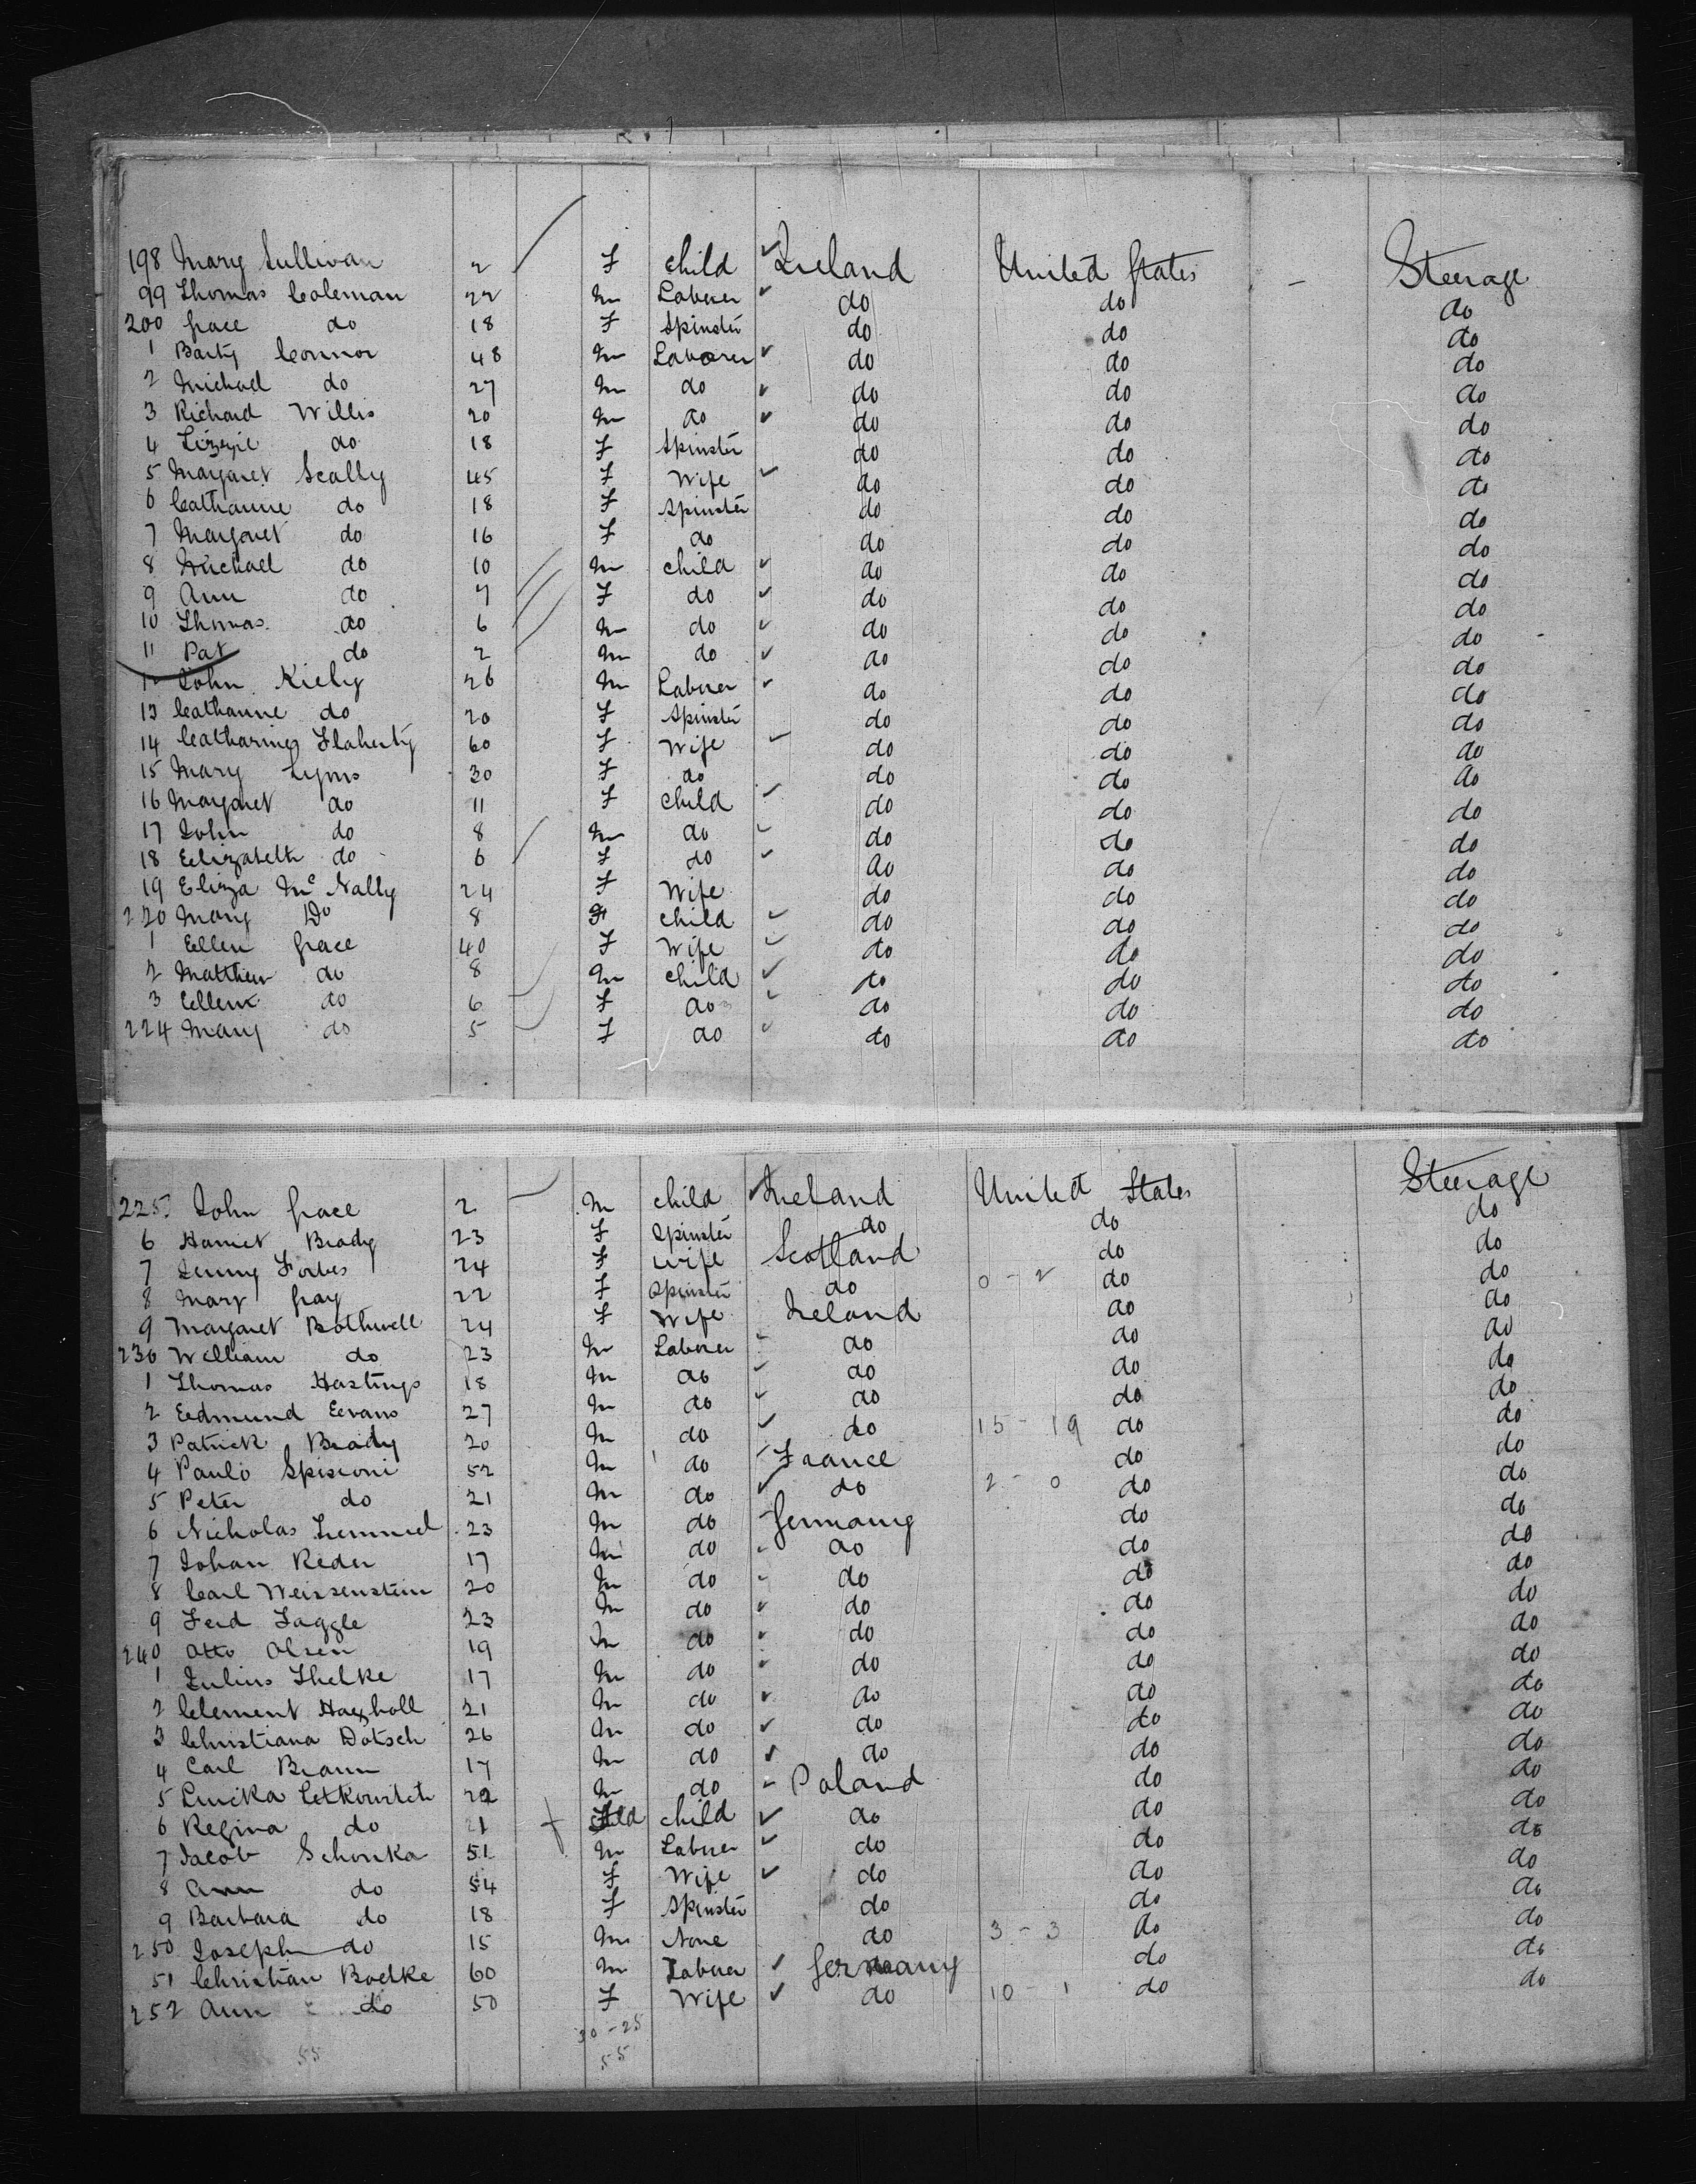 198 Mary Sullivan 2 F child Ireland United States - Steerage
99 Thomas Coleman 22 m Laborer do do do
200 Grace do 18 F Spinster do do do
1 Barty Connor 48 m Laborer do do do
2 Michael do 27 m do do do do
3 Richard Willis 20 m do do do do
4 Lizzie do 18 F Spinster do do do
5 Margaret Scally 45 F Wife do do do
6 Catharine do 18 F Spinster do do do
7 Margaret do 16 F do do do do
8 Michael do 10 m child do do do
9 Ann do 7 F do do do do
10 Thomas do 6 m do do do do
11 Pat do 2 m do do do do
12 John Kiely 26 m Laborer do do do
13 Catharine do 20 F Spinster do do do
14 Catharine Flaherty 60 F Wife do do do
15 Mary Lyons 30 F do do do do
16 Margaret do 11 F child do do do
17 John do 8 m do do do do
18 Elizabeth do 6 F do do do do
19 Eliza McNally 24 F Wife do do do
220 Mary Do 8 F child do do do
1 Ellen Grace 40 F Wife do do do
2 Matthew do 8 m child do do do
3 Ellen do 6 F do do do do
224 Mary do 5 F do do do do
225 John Grace 2 m child Ireland United States Steerage
6 Harriet Brady 23 F Spinster do do do
7 Jenny Forbes 24 F Wife Scotland do do
8 Mary Gray 22 F Spinster do 0 - 2 do do
9 Margaret Bothwell 24 F Wife Ireland do do
230 William do 23 m Laborer do do do
1 Thomas Hastings 18 m do do do do
2 Edmund Evans 27 m do do do do
3 Patrick Brady 20 m do do 15 - 19 do do
4 Paulo Spisioni 52 m do France do do
5 Peter do 21 m do do 2 - 0 do do
6 Nicholas 23 m do Germany do do
7 Johan Reder 17 m do do do do
8 Carl Weissenstein 20 m do do do do
9 Ferd Faggle 23 m do do do do
240 Otto Olsen 19 m do do do do
1 Julius Thelke 17 m do do do do
2 Clement 21 m do do do do
3 Christiana Dotsch 26 m do do do do
4 Carl Braun 17 m do do do do
5 22 m do Poland do do
6 Regina do child do do do
7 Jacob Schonka 51 m Laborer do do do
8 Ann do 54 F Wife do do do
9 Barbara do 18 F Spinster do do do
250 Joseph do 15 m None do 3 - 3 do do
51 Christian Boelke 60 m Laborer Germany do do
252 Ann do 50 F Wife do 10 - 1 do do
30 - 25
55 55